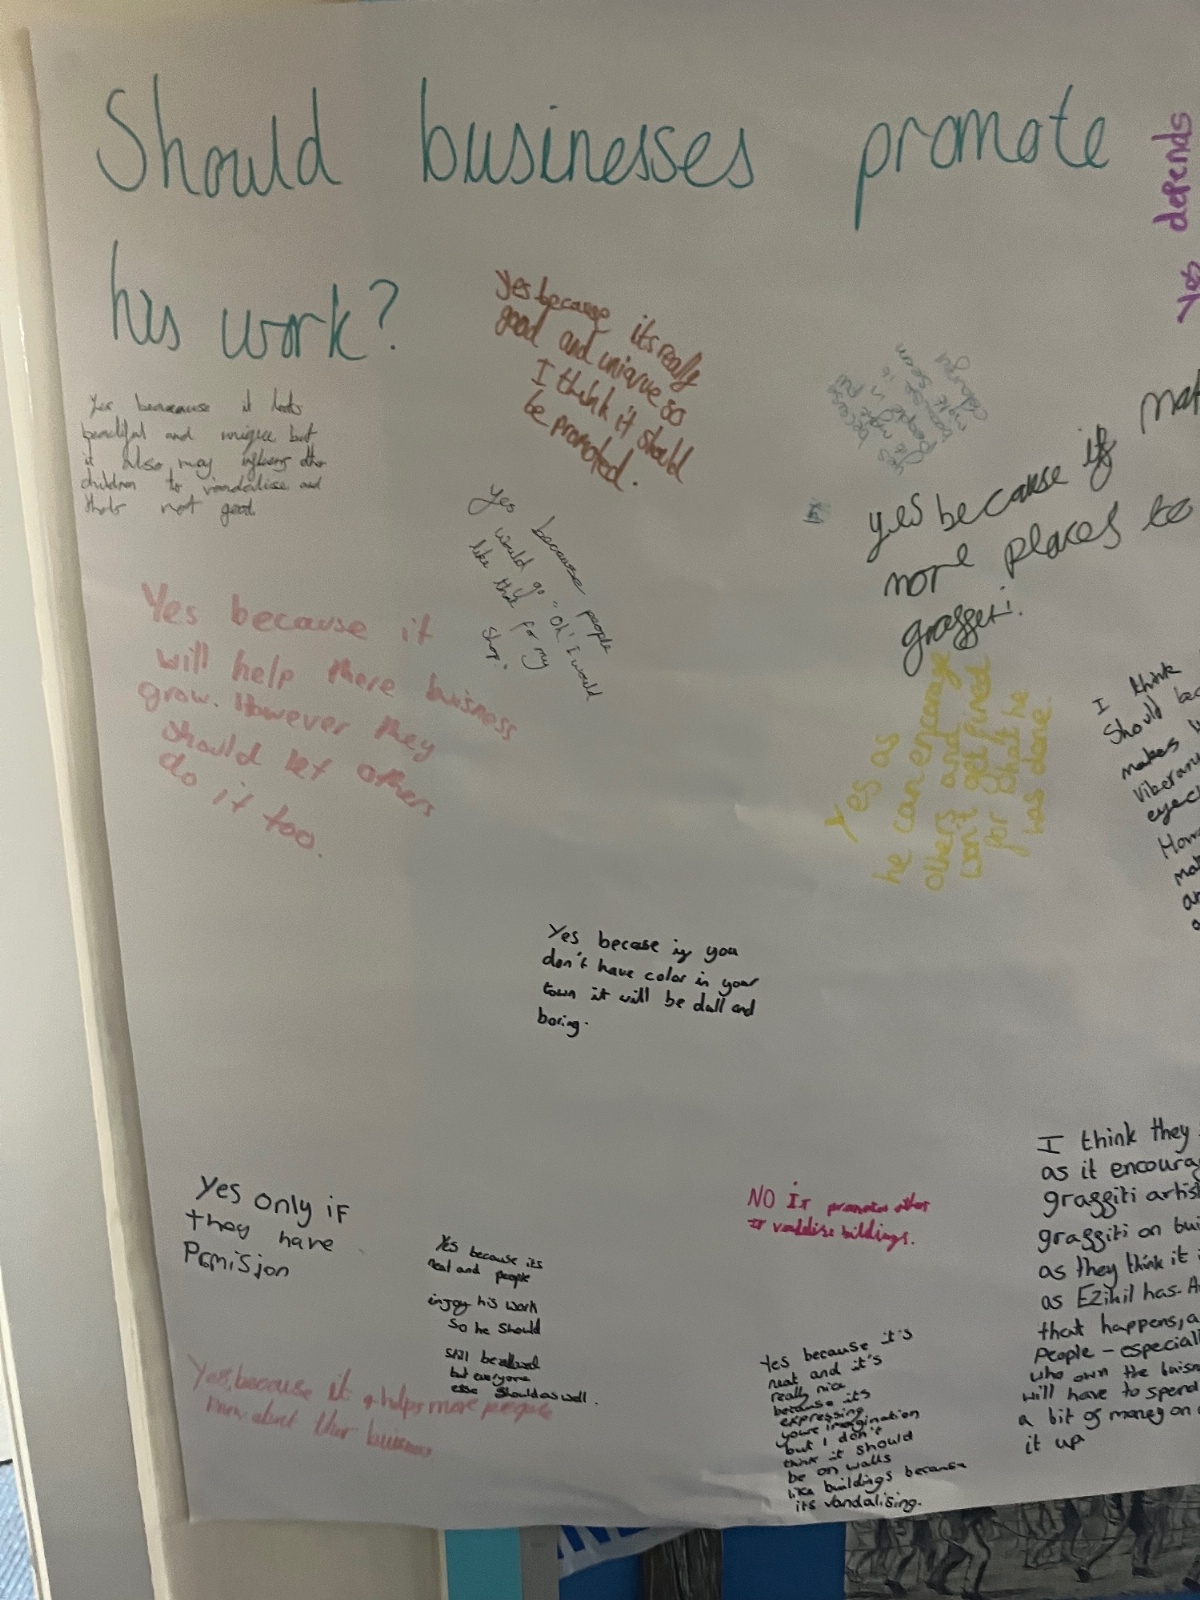 Should businesses promote
his work?
Yes depends
yes because its really
good and unique so
I think it should
be promoted.
Yes beacause it looks
beautiful and unique but
it also may other
children to vandalise and
thats not good
yes because people
would go "oh" I would
like that for my
shop"
yes because if mak
more places to
graffeti.
Yes because it
will help there buisness
grow. However they
should let others
do it too.
Yes as
he can encourage
others and
won't get fined
for what he
has done.
I think
Should bec
makes
Viberan
eyec
How
mak
an
Yes becase if you
don't have color in your
town it will be dull and
boring.
Yes only if
they have
Pemisjon
Yes because its
neat and people
injoy his work
so he should
still
but everyone
else should as well.
Yes, because it helps more people
know about thier buisness
NO It promotes other
to vandilise bildings.
Yes because it's
neat and it's
really nice
because its
expressing
youre imagination
but I don't
think it should
be on walls
like buildings because
its vandalising.
I think they
as it encourag
graffiti artis
graffiti on bui
as they think it
as Ezikil has. A
that happens, a
People - especiall
who own the buisn
will have to spend
a bit of money on
it up